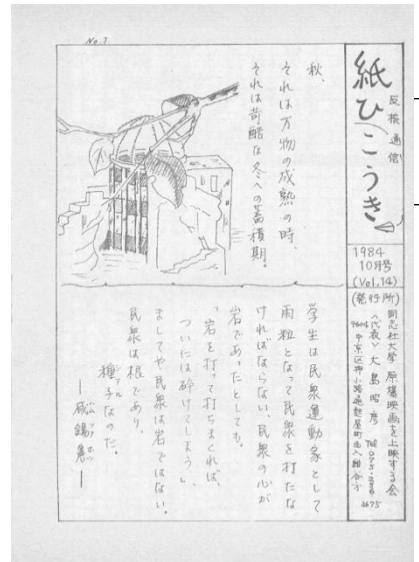 No.7
反核通信
紙ひこうき
1984
10月号
(Vol.14)
(発行所)
同志社大学 原爆映画を上映する会
<代表> 大島昭彦
Tel 075-256
秋、
それは万物の成熟の時、
それは苛酷な冬への蓄積期。
学生は民衆運動家として
雨粒となって民衆を打たな
ければならない、民衆の心が
岩であったとしても。
「岩を打って打ちまくれば、
ついには砕けてしまう」
ましてや民衆は岩ではない。
民衆は根であり、
種子なのだ。
―咸錫憲―